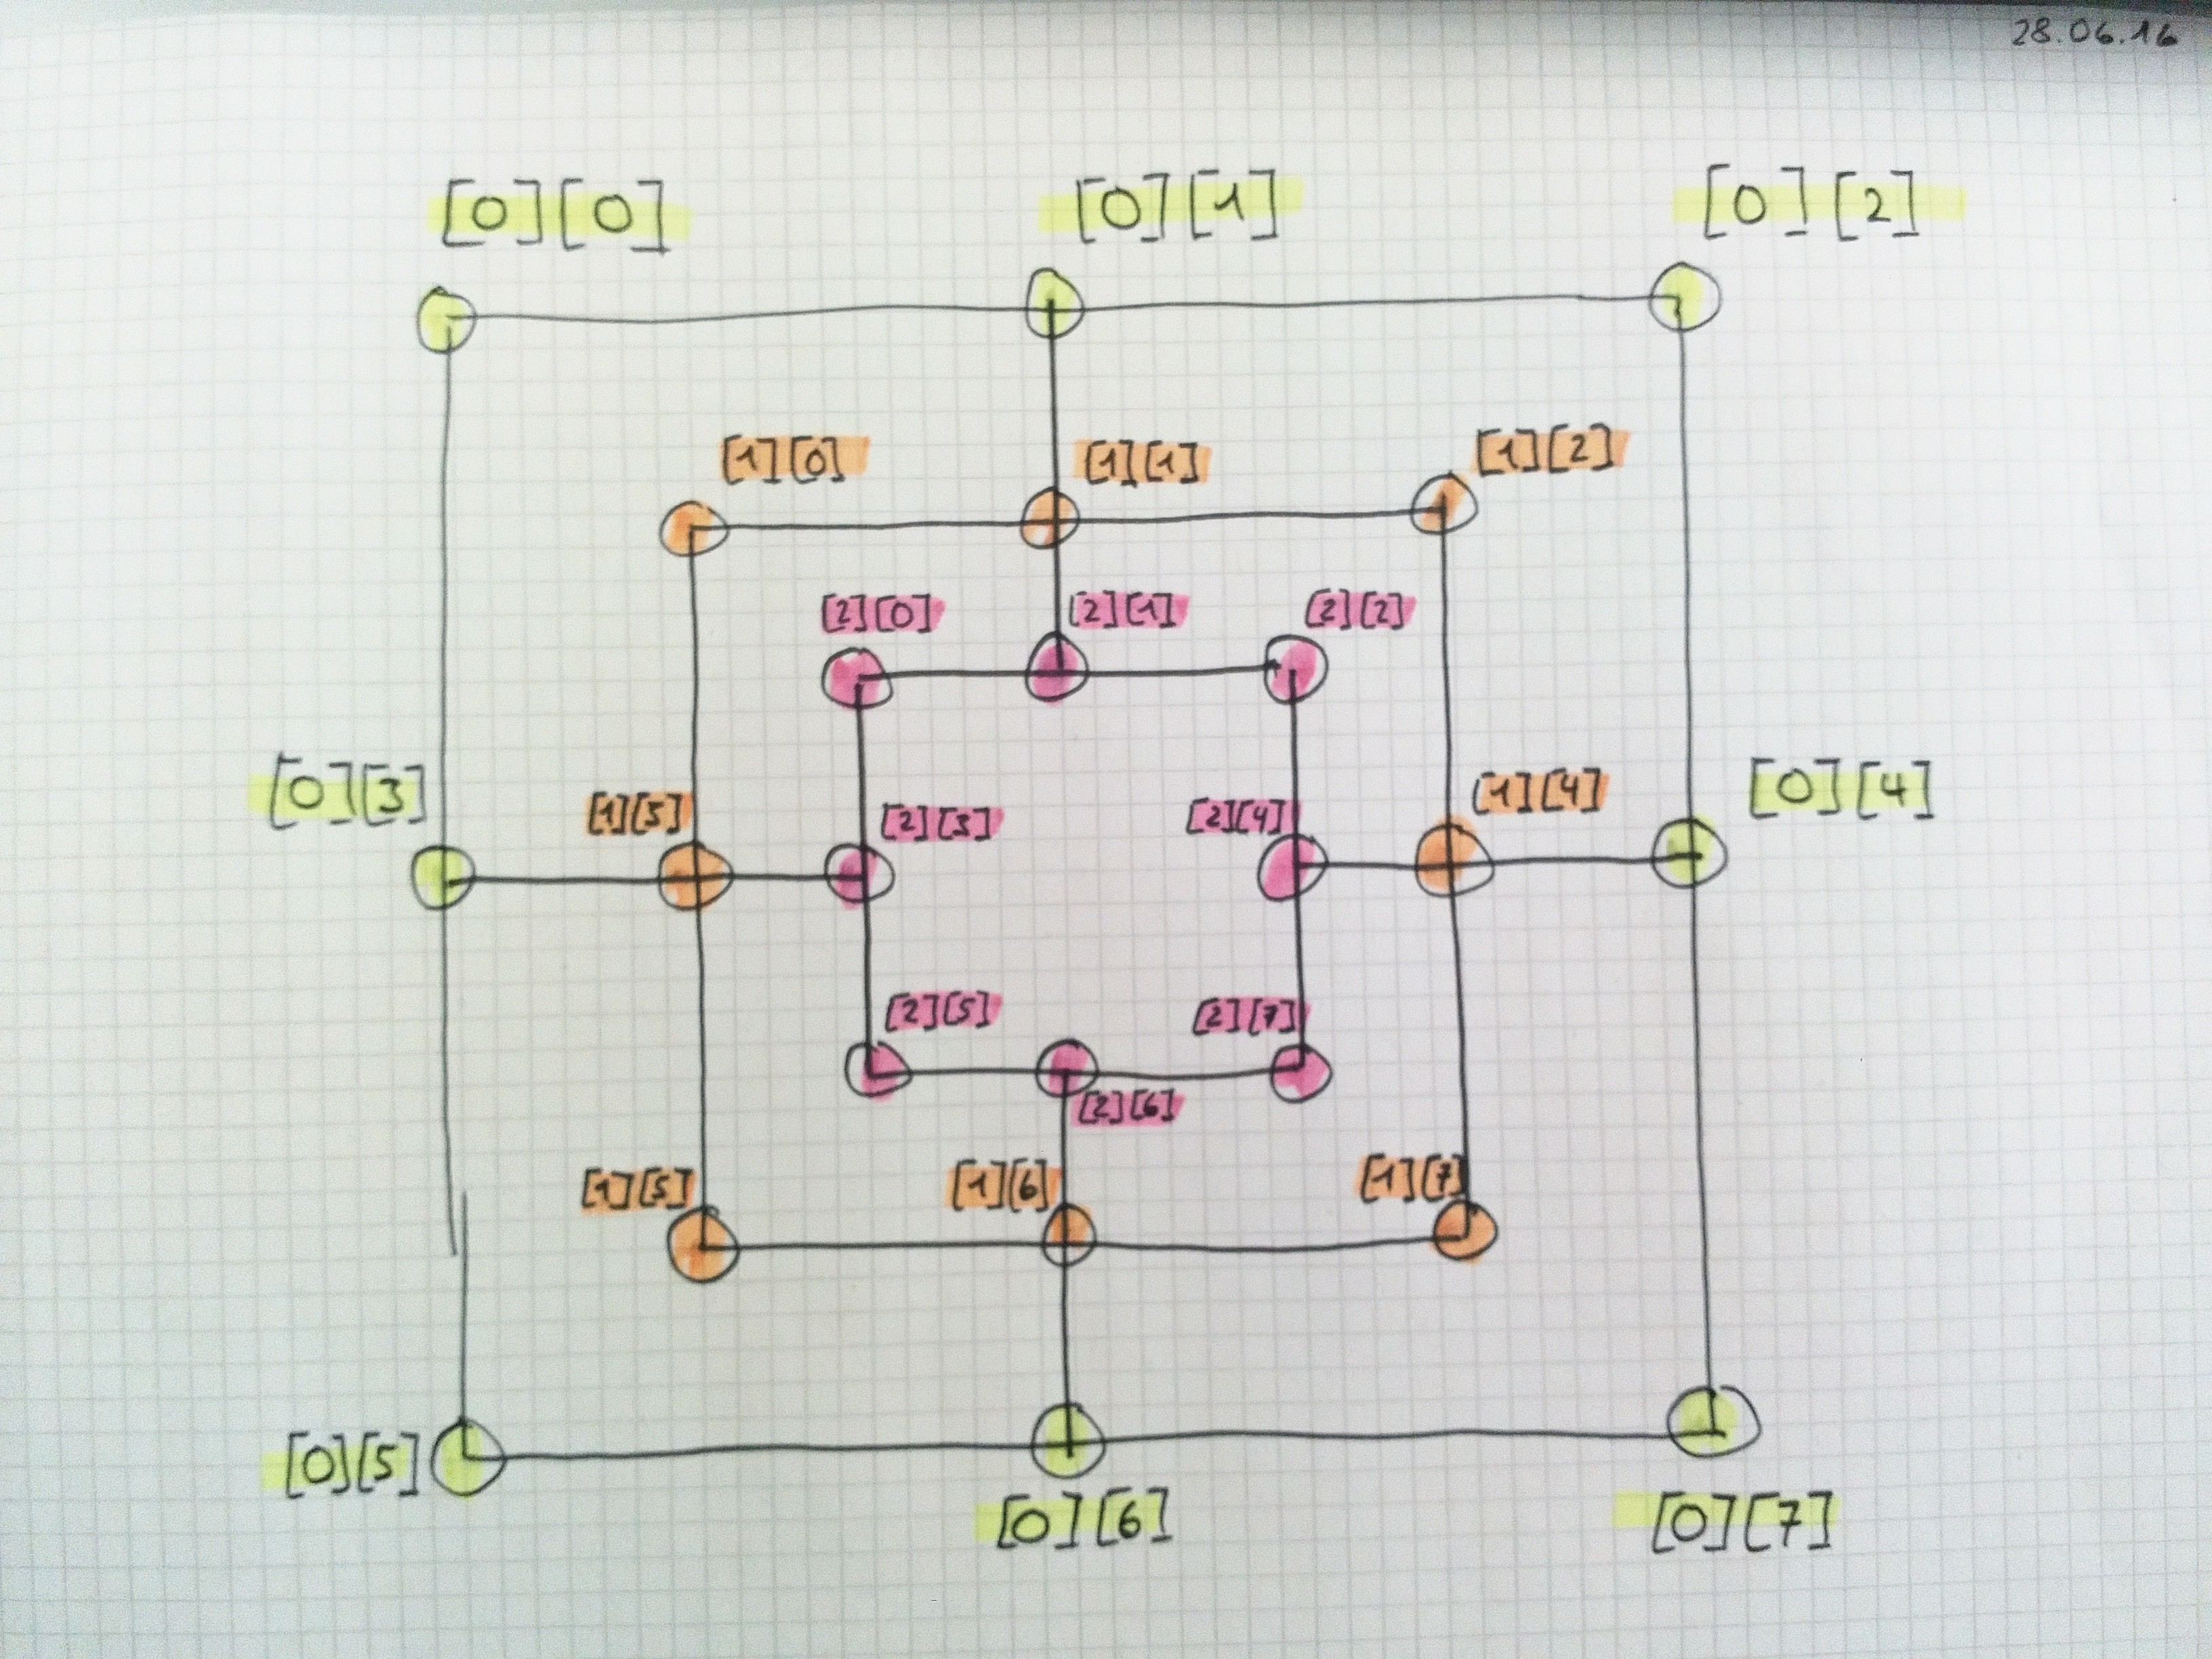 28.06.16
[0][0] [0][1] [0][2]
[1][0] [1][1] [1][2]
[2][0] [2][1] [2][2]
[0][3] [1][3] [2][3] [2][4] [1][4] [0][4]
[2][5] [2][7]
[2][6]
[1][5] [1][6] [1][7]
[0][5] [0][6] [0][7]